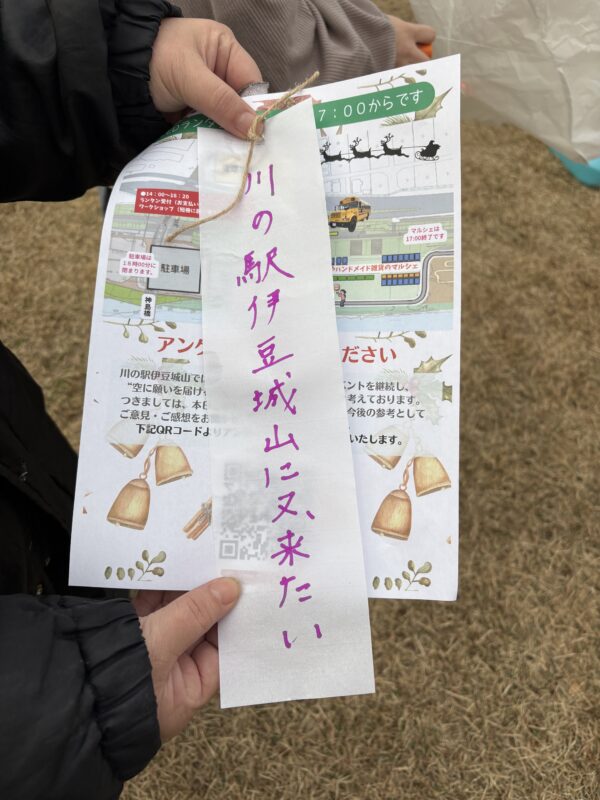 ランタン
7：00からです
●14：00～16：20
ランタン受付（お支払い
ワークショップ（短冊に
駐車場は
16時00分に
閉まります。
駐車場
神島橋
マルシェは
17:00終了です
ハンドメイド雑貨のマルシェ
川の駅伊豆城山に又、来たい
アンケ
ださい
川の駅伊豆城山では
ベントを継続し、
“空に願いを届け
考えております。
つきましては、本日
今後の参考として
ご意見・ご感想をお
いたします。
下記QRコードより